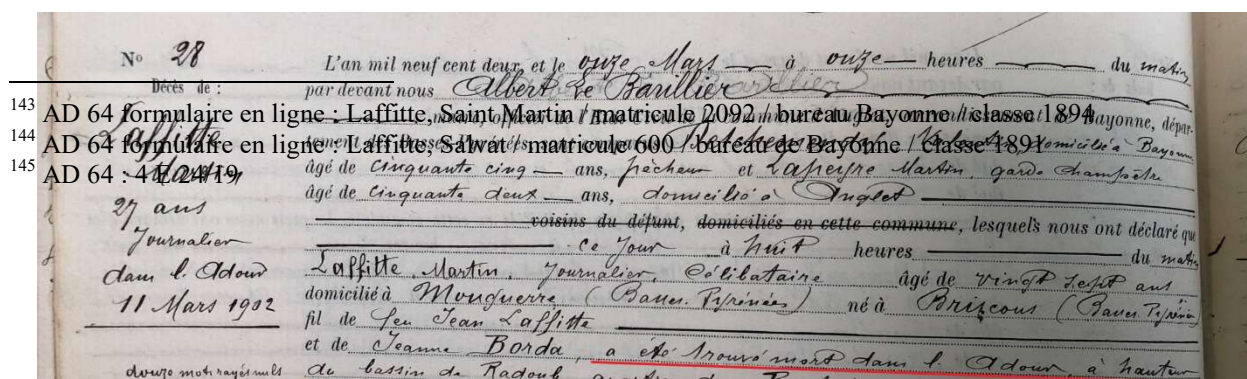 Nº 28
Décès de :
Laffitte
Martin
27 ans
Journalier
dans l'Adour
11 Mars 1902
douze mots rayés nuls
L'an mil neuf cent deux, et le onze Mars à onze heures du matin
par devant nous Albert Le Barillier
officier de l'État de Bayonne, dépar-
domicilié à Bayonne
âgé de Cinquante cinq ans, pêcheur et Lapeyre Martin, garde champêtre
âgé de Cinquante deux ans, domicilié à Anglet
voisins du défunt, domiciliés en cette commune, lesquels nous ont déclaré que
ce jour à huit heures du matin
Laffitte, Martin, Journalier, Célibataire âgé de vingt sept ans
domicilié à Mouguerre (Basses Pyrénées) né à Briscous (Basses Pyrénées)
fil de feu Jean Laffitte
et de Jeanne Borda, a été trouvé mort dans l'Adour, à hauteur
du bassin de Radoub
143 AD 64 formulaire en ligne : Laffitte, Saint Martin / matricule 2092 / bureau Bayonne / classe 1894
144 AD 64 formulaire en ligne : Laffitte, Salvat / matricule 600 / bureau de Bayonne / classe 1891
145 AD 64 : 4 E 24/19